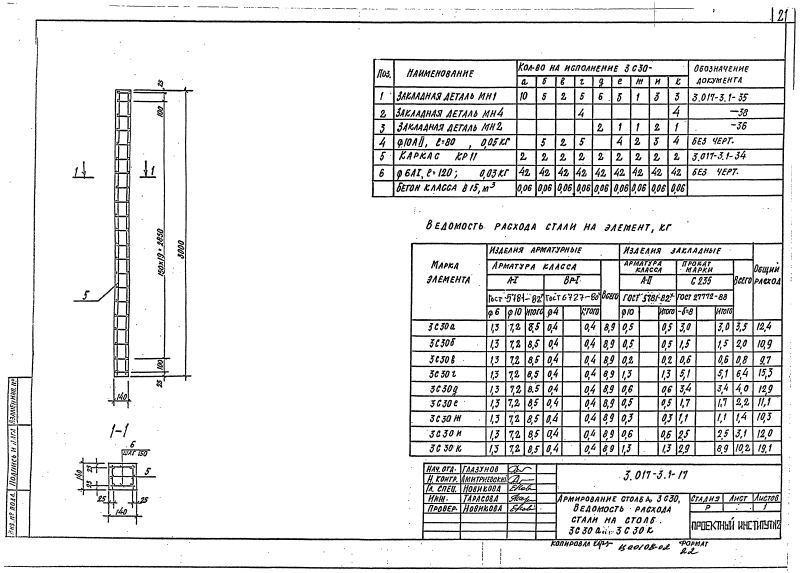 21
Поз.	Наименование	Кол-во на исполнение 3С30-	Обозначение документа
а б в г д е ж и к
1 Закладная деталь МН1 10 5 2 5 6 3 1 3 3 3.017-3.1-35
2 Закладная деталь МН4 4 4 -38
3 Закладная деталь МН2 2 1 1 2 1 -36
4 ф10АII, ℓ=80, 0,05кг 5 2 5 4 2 3 4 без черт.
5 Каркас КР11 2 2 2 2 2 2 2 2 2 3.017-3.1-34
6 ф6АI, ℓ=120; 0,03кг 42 42 42 42 42 42 42 42 42 без черт.
Бетон класса В15, м³ 0,06 0,06 0,06 0,06 0,06 0,06 0,06 0,06 0,06
Ведомость расхода стали на элемент, кг
Марка элемента
Изделия арматурные Изделия закладные
Арматура класса Арматура класса Прокат марки Всего Общий расход
А-I Вр-I Всего А-II С235
Гост 5781-82* Гост 6727-80* Гост 5781-82* Гост 27772-88
ф6 ф10 Итого ф4 Итого ф10 Итого -δ=8 Итого
3С30а 1,3 7,2 8,5 0,4 0,4 8,9 0,5 0,5 3,0 3,0 3,5 12,4
3С30б 1,3 7,2 8,5 0,4 0,4 8,9 0,5 0,5 1,5 1,5 2,0 10,9
3С30в 1,3 7,2 8,5 0,4 0,4 8,9 0,2 0,2 0,6 0,6 0,8 9,7
3С30г 1,3 7,2 8,5 0,4 0,4 8,9 1,3 1,3 5,1 5,1 6,4 15,3
3С30д 1,3 7,2 8,5 0,4 0,4 8,9 0,6 0,6 3,4 3,4 4,0 12,9
3С30е 1,3 7,2 8,5 0,4 0,4 8,9 0,5 0,5 1,7 1,7 2,2 11,1
3С30ж 1,3 7,2 8,5 0,4 0,4 8,9 0,3 0,3 1,1 1,1 1,4 10,3
3С30и 1,3 7,2 8,5 0,4 0,4 8,9 0,6 0,6 2,5 2,5 3,1 12,0
3С30к 1,3 7,2 8,5 0,4 0,4 8,9 1,3 1,3 2,9 8,9 10,2 19,1
25
100
1 1
150х19=2850
3000
5
100
25
140
1-1
6
шаг 150
25
140
25
5
25 25
140
Нач. отд. Глазунов
Н. контр. Дмитриевская
Гл. спец. Новикова
Инж. Тарасова
Провер. Новикова
3.017-3.1-17
Армирование столба 3С30.
Ведомость расхода
стали на столб
3С30а... 3С30к
Стадия Лист Листов
Р 1
Проектный институт №2
Копировал
Формат
Инв. № подл. Подпись и дата Взам. инв. №